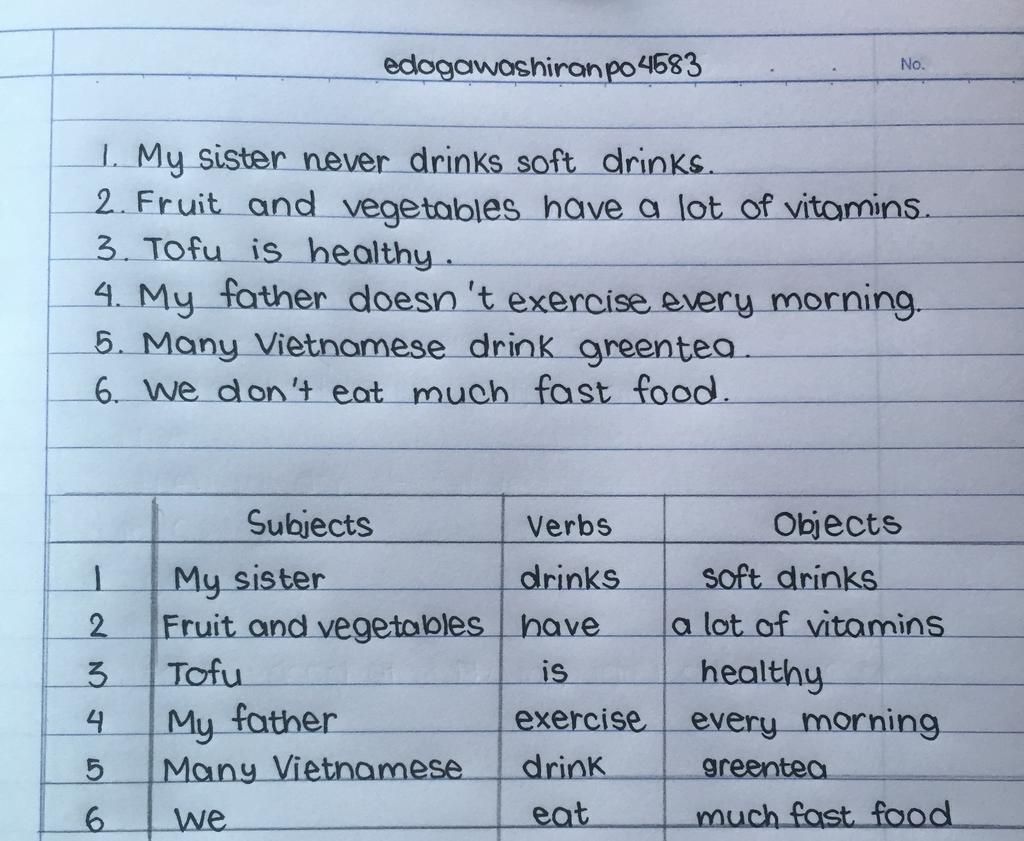 edogawashiranpo4583
No.
1. My sister never drinks soft drinks.
2. Fruit and vegetables have a lot of vitamins.
3. Tofu is healthy.
4. My father doesn't exercise every morning.
5. Many Vietnamese drink greentea.
6. We don't eat much fast food.
Subjects Verbs Objects
1 My sister drinks soft drinks
2 Fruit and vegetables have a lot of vitamins
3 Tofu is healthy
4 My father exercise every morning
5 Many Vietnamese drink greentea
6 We eat much fast food